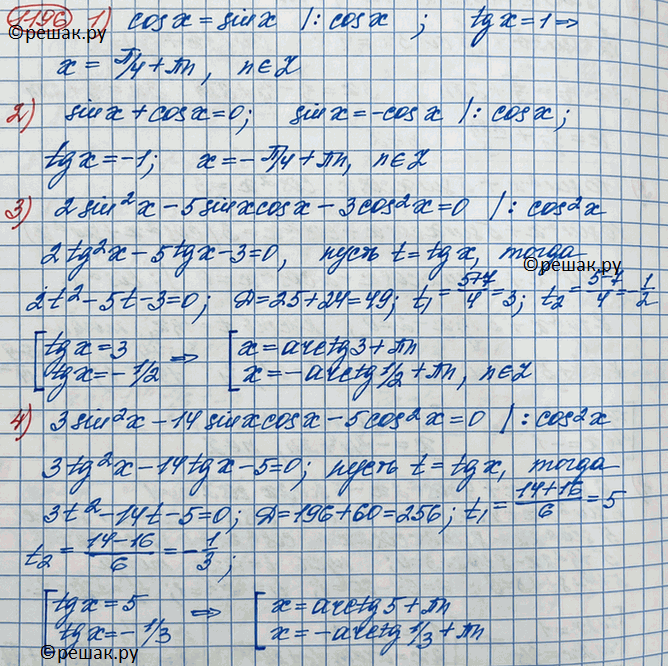 1196 1) cosx = sinx |: cosx ; tgx = 1 ⇒
©решак.ру
x = π/4 + πn, n∈Z
2) sinx + cosx = 0; sinx = -cosx |: cosx;
tgx = -1; x = -π/4 + πn, n∈Z
3) 2sin²x - 5sinxcosx - 3cos²x = 0 |: cos²x
2tg²x - 5tgx - 3 = 0, пусть t = tgx, тогда
©решак.ру
2t² - 5t - 3 = 0; D = 25 + 24 = 49; t₁ = (5+7)/4 = 3; t₂ = (5-7)/4 = -1/2
[ tgx = 3 ⇒ [ x = arctg3 + πn
tgx = -1/2 x = -arctg1/2 + πn, n∈Z
4) 3sin²x - 14sinxcosx - 5cos²x = 0 |: cos²x
3tg²x - 14tgx - 5 = 0; пусть t = tgx, тогда
3t² - 14t - 5 = 0; D = 196 + 60 = 256; t₁ = (14+16)/6 = 5
t₂ = (14-16)/6 = -1/3;
[ tgx = 5 ⇒ [ x = arctg5 + πn
tgx = -1/3 x = -arctg1/3 + πn
©решак.ру